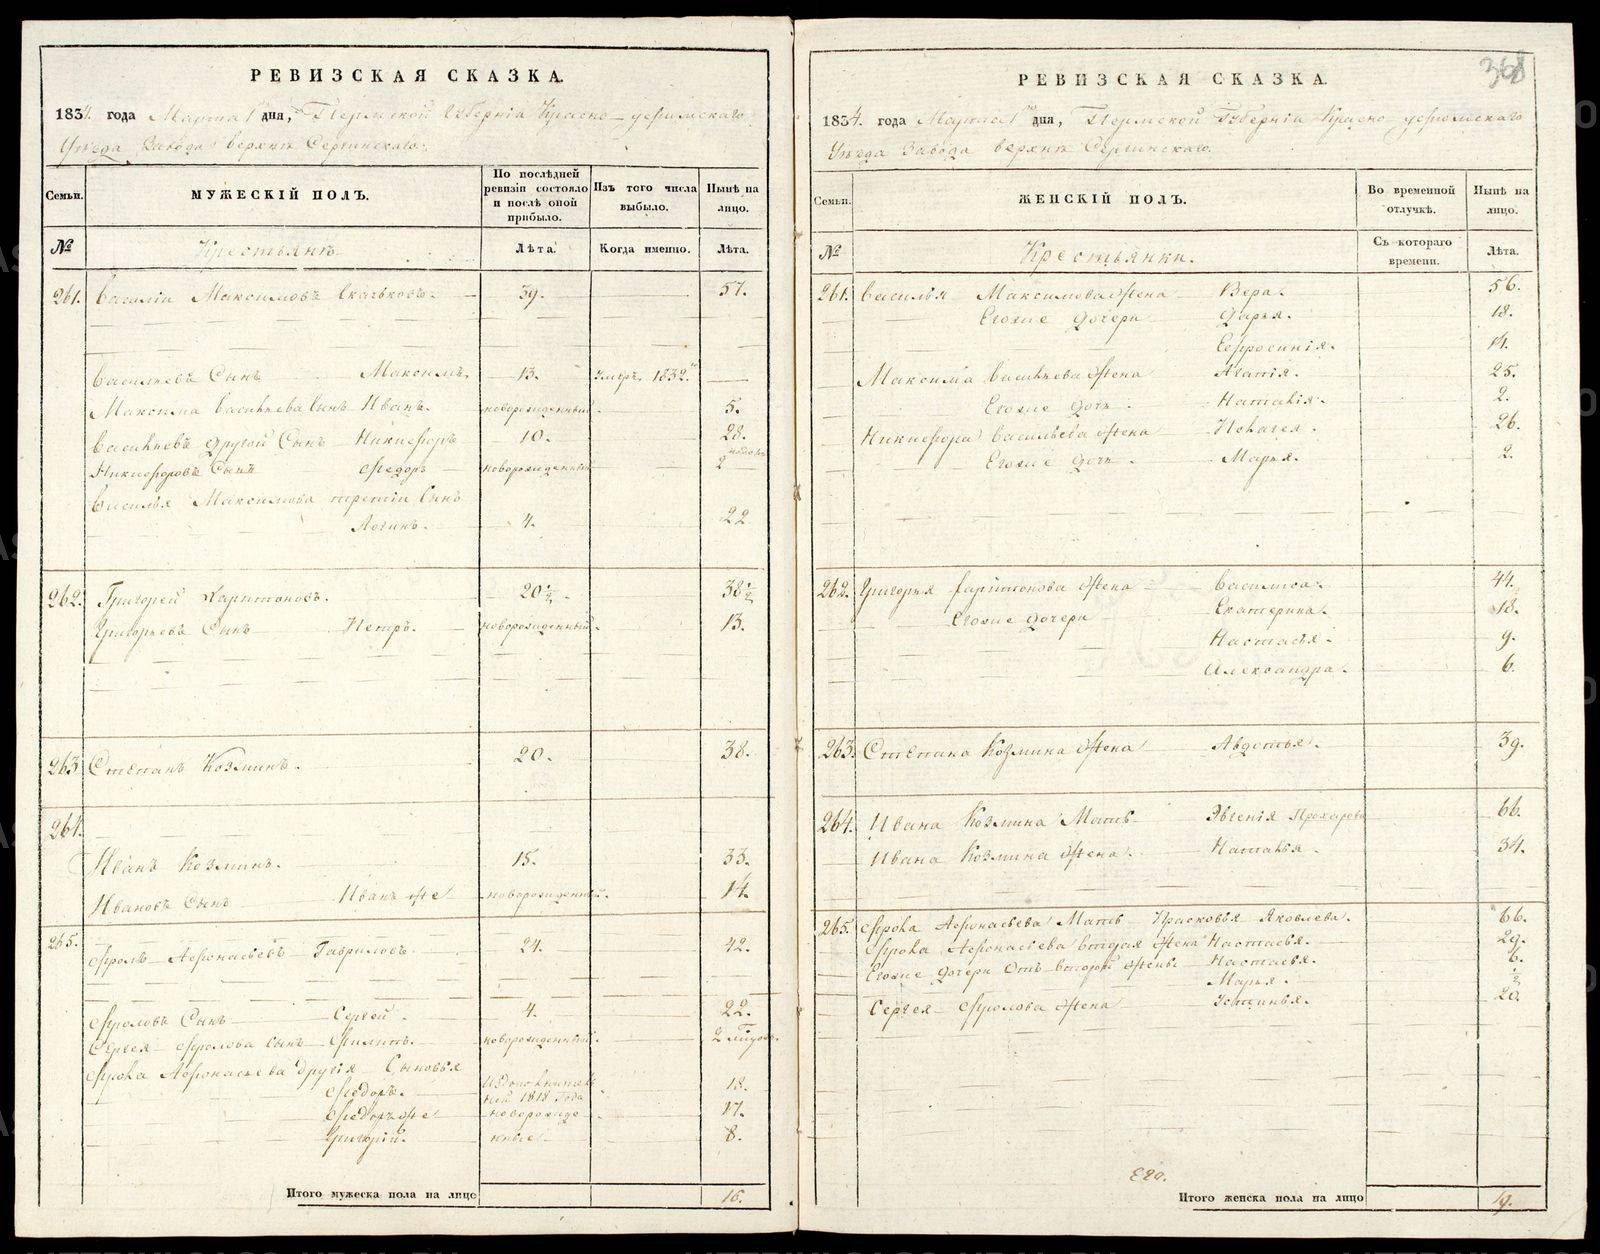 РЕВИЗСКАЯ СКАЗКА.
1834. года Марта 1 дня, Пермской Губерніи Красно-уфимскаго
Уѣзда Завода верхнѣ Сергинскаго.
Семьи.
МУЖЕСКІЙ ПОЛЪ.
По послѣдней ревизіи состояло и послѣ оной прибыло.
Изъ того числа выбыло.
Нынѣ на лицо.
№
Крестьянъ
Лѣта.
Когда именно.
Лѣта.
261. Василіи Максимовъ 39. 57.
Васильевъ Сынъ Максимъ. 13. умръ. 1832. —
Максима Васильева Сынъ Иванъ. новорожденный. 5.
Васильевъ другой Сынъ Никифоръ 10. 28.
Никифоровъ Сынъ Федоръ новорожденный 2
Василья Максимова третіи Сынъ
Логинъ. 4. 22
262. Григорей Харитоновъ. 20½. 38½
Григорьевъ Сынъ Петръ. новорожденный. 13.
263 Степанъ Козминъ. 20. 38.
264.
Иванъ Козминъ. 15. 33.
Ивановъ Сынъ Иванъ же новорожденный. 14.
265. Фролъ Афонасьевъ Гавриловъ. 24. 42.
Фроловъ Сынъ Сергей. 4. 22.
Сергея Фролова Сынъ Филипъ. новорожденный. 2
Фрола Афонасьева другія Сыновья
Федоръ. 1818 года 18.
Федоръ же новорожде 17.
Григорій. нные 8.
Итого мужеска пола на лицо 16.
368
РЕВИЗСКАЯ СКАЗКА.
1834. года Марта 1 дня, Пермской Губерніи Красно-уфимскаго
Уѣзда Завода верхнѣ Сергинскаго.
Семьи.
ЖЕНСКІЙ ПОЛЪ.
Во временной отлучкѣ.
Нынѣ на лицо.
№
Крестьянки.
Съ котораго времени.
Лѣта.
261. Василья Максимова Жена Вера. 56.
Егоже дочери Дарья. 18.
Ефросинія. 14.
Максима Васильева Жена Агапія. 25.
Егоже дочь. Наталія. 2.
Никифора Васильева Жена Пелагея. 26.
Егоже дочь. Марья. 2.
262. Григорья Харитонова Жена Василиса. 44.
Егоже дочери Екатерина. 18.
Настасья. 9.
Александра. 6.
263. Степана Козмина Жена Авдотья. 39.
264. Ивана Козмина Мать Евгенія Прохорова 66.
Ивана Козмина Жена. Наталья. 34.
265. Фрола Афонасьева Мать Прасковья Яковлева. 66.
Фрола Афонасьева вторая Жена Настасья. 29.
Егоже дочери Отъ второй Жены Настасья. 6.
Марья. ½
Сергея Фролова Жена Устинья. 20.
Итого женска пола на лицо 19.